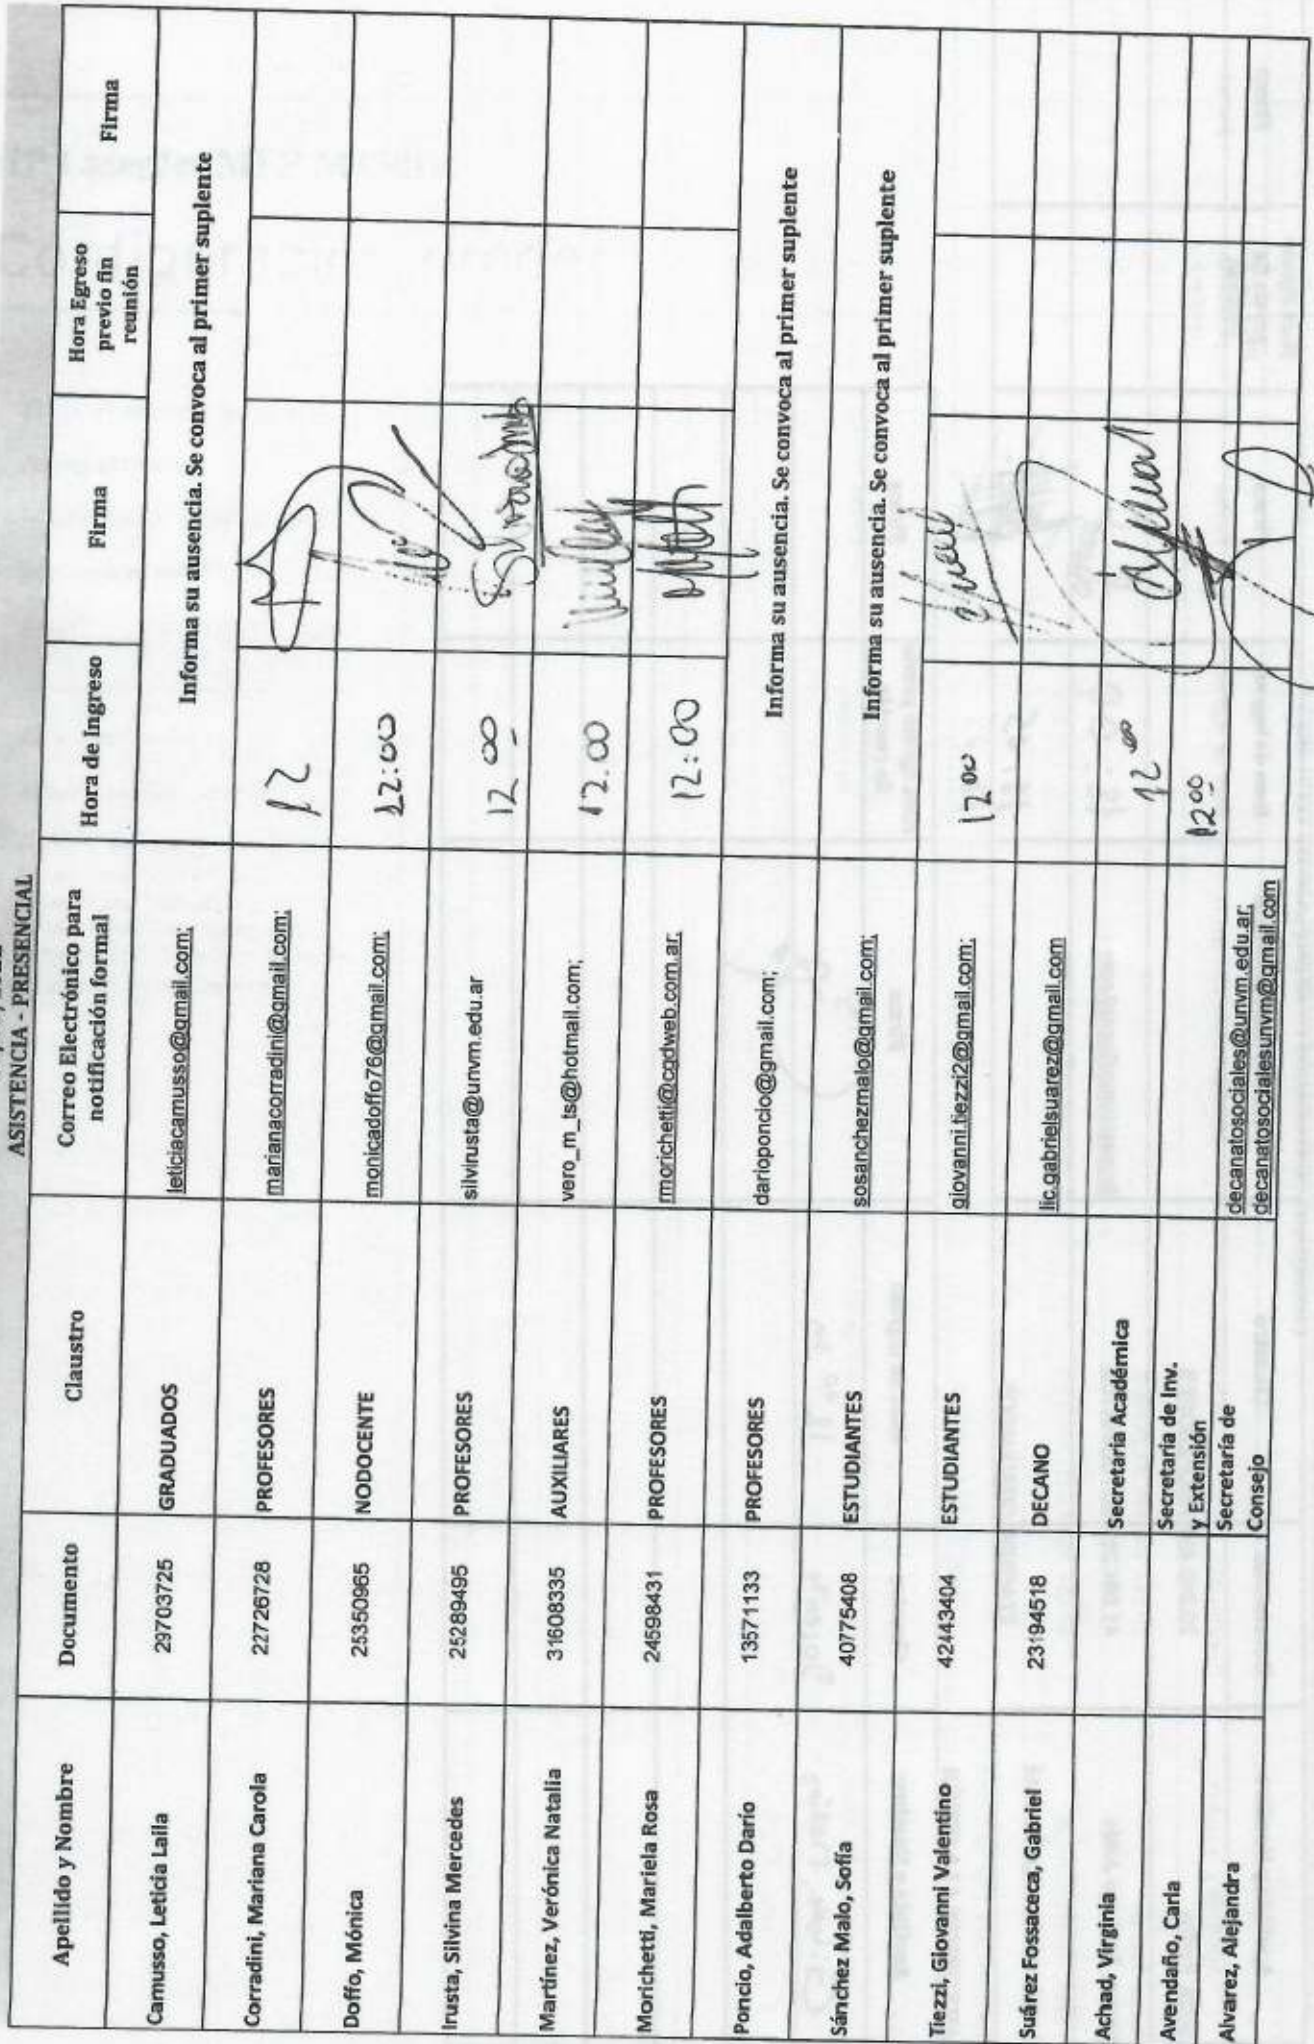 ASISTENCIA - PRESENCIAL
Apellido y Nombre
Documento
Claustro
Correo Electrónico para
notificación formal
Hora de Ingreso
Firma
Hora Egreso
previo fin
reunión
Firma
Camusso, Leticia Laila
29703725
GRADUADOS
leticiacamusso@gmail.com;
Informa su ausencia. Se convoca al primer suplente
Corradini, Mariana Carola
22726728
PROFESORES
marianacorradini@gmail.com;
12
Doffo, Mónica
25350965
NODOCENTE
monicadoffo76@gmail.com;
12:00
Irusta, Silvina Mercedes
25289495
PROFESORES
silvirusta@unvm.edu.ar
12 00
Martínez, Verónica Natalia
31608335
AUXILIARES
vero_m_ts@hotmail.com;
12.00
Morichetti, Mariela Rosa
24598431
PROFESORES
rmorichetti@cgdweb.com.ar;
12:00
Poncio, Adalberto Darío
13571133
PROFESORES
darioponcio@gmail.com;
Informa su ausencia. Se convoca al primer suplente
Sánchez Malo, Sofía
40775408
ESTUDIANTES
sosanchezmalo@gmail.com;
Informa su ausencia. Se convoca al primer suplente
Tiezzi, Giovanni Valentino
42443404
ESTUDIANTES
giovanni.tiezzi2@gmail.com;
12 00
Suárez Fossaceca, Gabriel
23194518
DECANO
lic.gabrielsuarez@gmail.com
Achad, Virginia
Secretaria Académica
12 00
Avendaño, Carla
Secretaria de Inv.
y Extensión
12 00
Alvarez, Alejandra
Secretaría de
Consejo
decanatosociales@unvm.edu.ar;
decanatosocialesunvm@gmail.com